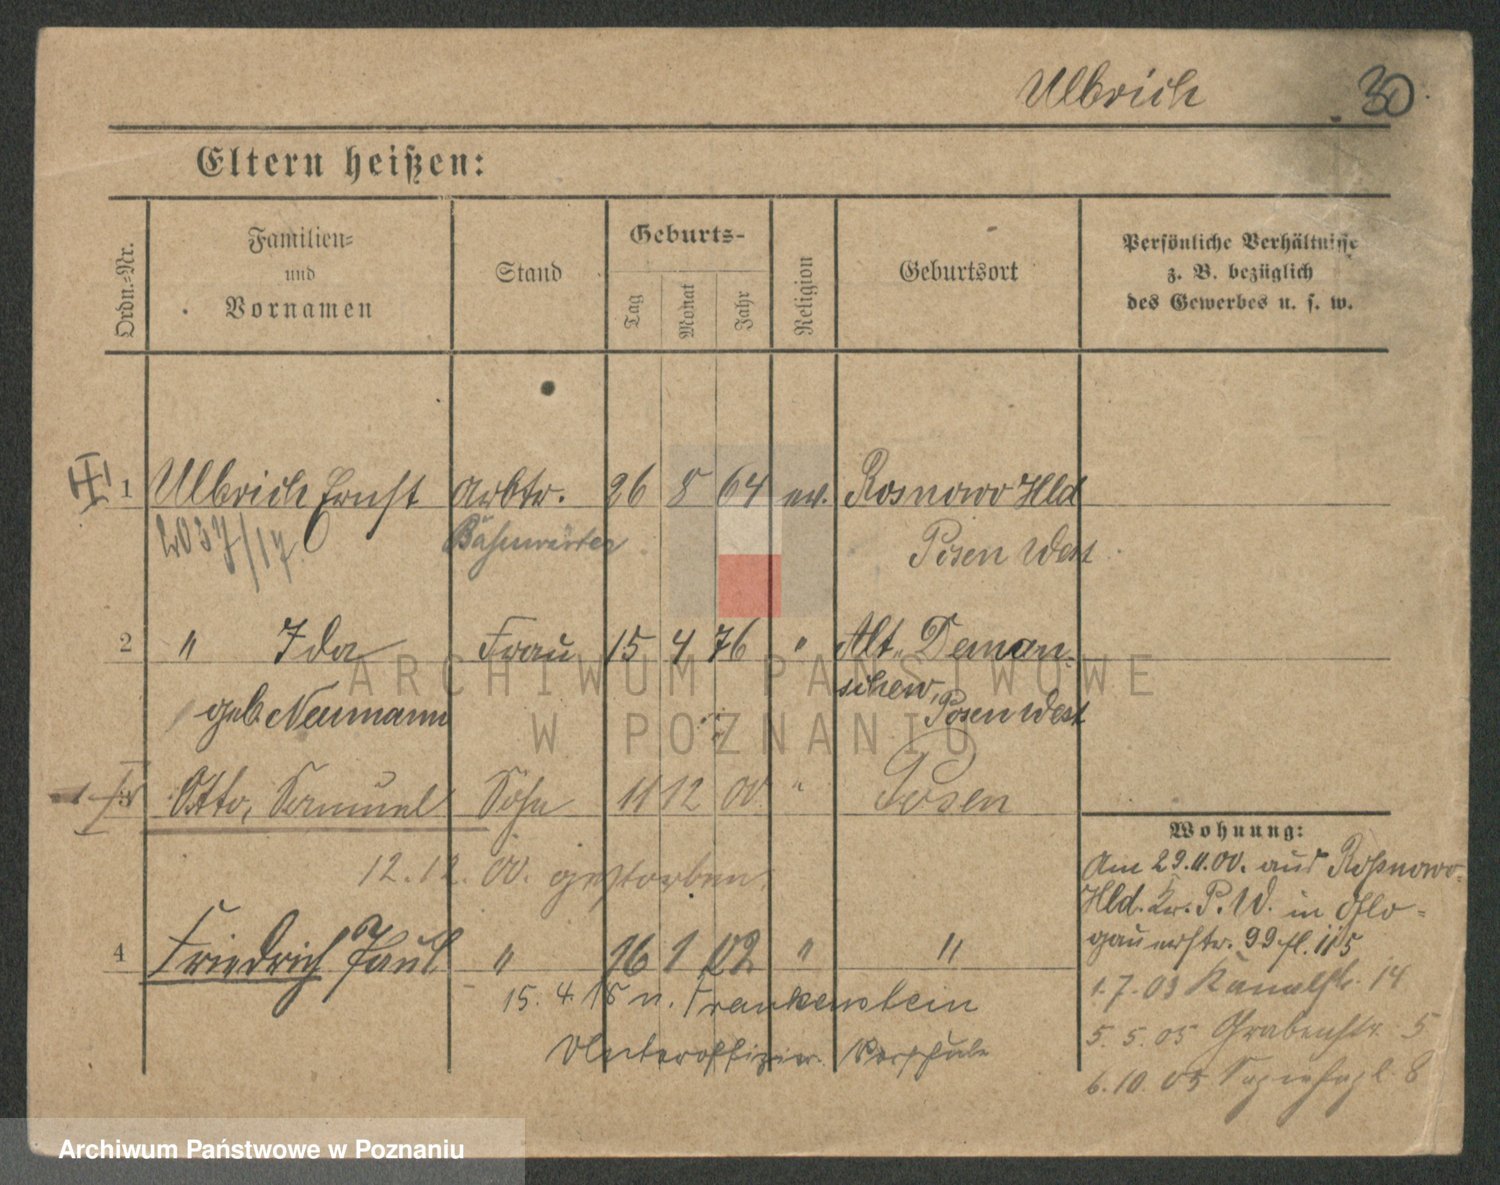 Ulbrich 30
Eltern heißen:
Ordn.-Nr.
Familien-
und
Vornamen
Stand
Geburts-
Tag
Monat
Jahr
Religion
Geburtsort
Persönliche Verhältnisse
z. B. bezüglich
des Gewerbes u. s. w.
1 Ulbrich Ernst Arbtr. 26 8 64 ev. Rosnowo Hld
2037/17 Bahnwärter Posen West
2 " Ida Frau 15 4 76 " Alt-Deman-
schew,
geb. Neumann Posen West
3 Otto, Samuel Sohn 11 12 00 " Posen
12.12.00. gestorben.
4 Friedrich Paul " 16 1 02 " "
15.4.18 n. Frankenstein
Unteroffizier Vorschule
Wohnung:
Am 29.11.00. aus Rossnowo-
Hld. Kr. P. W. in Glo-
gauerstr. 99 fl. 115
1.7.03 Kanalstr. 14
5.5.05 Grabenstr. 5
6.10.05 Sapiehapl. 8
ARCHIWUM PAŃSTWOWE
W POZNANIU
Archiwum Państwowe w Poznaniu